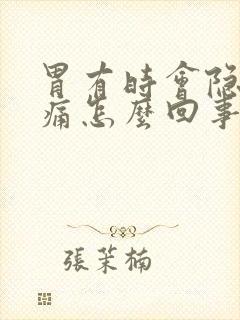 胃有時會隐
痛怎麼回事
張茉楠